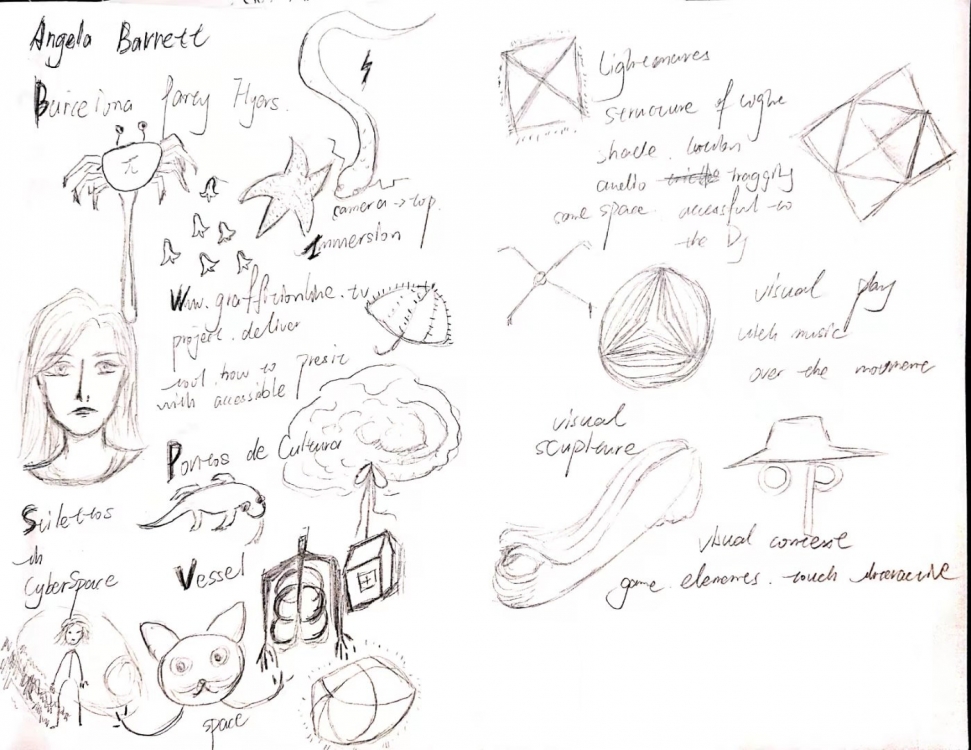 Angela Barrett
Barcelona party Flyers.
π
camera → top.
Immersion
Www.graffitionline.tv
project. deliver
tool. how to
with accessible
de Cultura
Stilettos
in
CyberSpace
Vessel
space
structure of light
shade.
audio
some space. accessful to
the Dj
visual play
with music
over the movment
visual
sculpture
visual
game elements. touch interactive